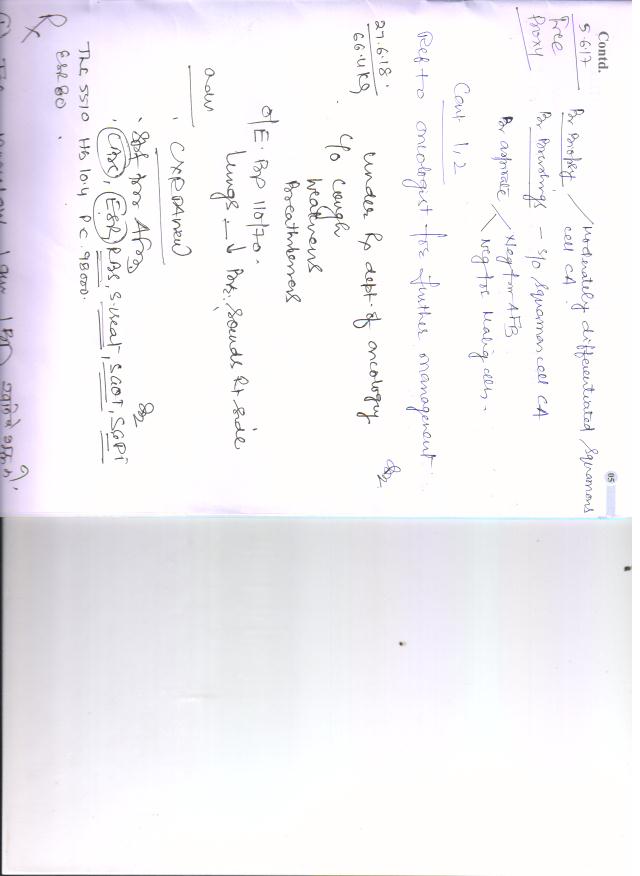 Contd.
05
5.6.17
Free
Proxy
Br Biopsy / Moderately differentiated squamous
cell CA.
Br Brushings – S/o Squamous cell CA
Br aspirate / Neg for AFB
Neg for Malig cells.
Cont 1,2
Ref to oncologist for further management.
27.6.18.
66.4 kg
Under Rx dept of oncology
c/o Cough
Weakness
Breathlessness
O/E. Bp 110/70.
Lungs – ↓ Br. Sounds Rt side
Adv
CXR PA view
Spt for AFB
CBC, ESR, RBS, S.creat, SGOT, SGPT
TLC 5510 Hb 10.4 P.C. 98000.
ESR 80.
Rx